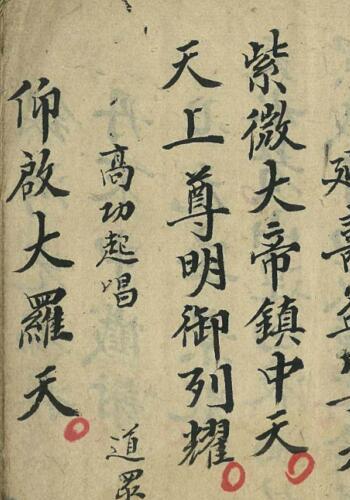 延壽
紫微大帝鎮中天
天上尊明御列耀
高功起唱
道眾
仰啟大羅天